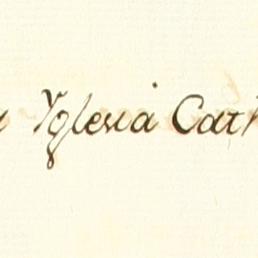 Yglesia Cath